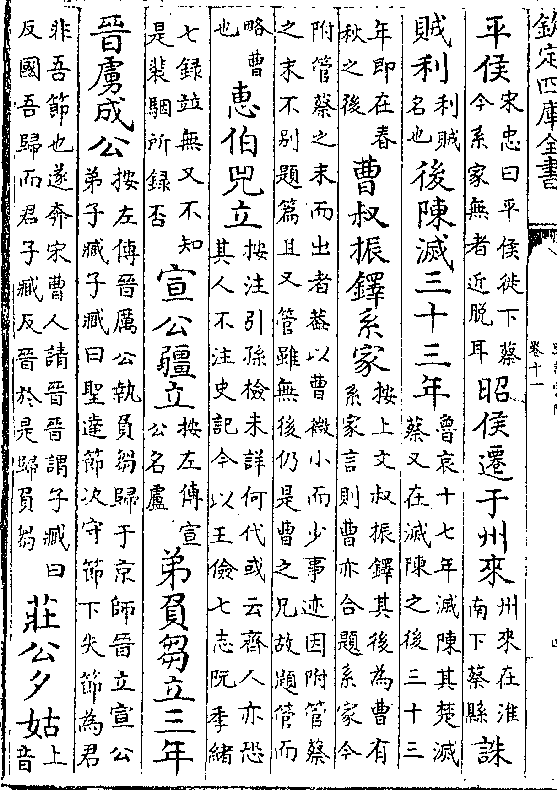 欽定四庫全書
卷十一
平侯宋忠曰平侯徙下蔡今系家無者近脫耳昭侯遷于州來州來在淮南下蔡縣誅
賊利利賊名也後陳滅三十三年魯哀十七年滅陳其楚滅蔡又在滅陳之後三十三
年即在春秋之後曹叔振鐸系家按上文叔振鐸其後為曹有系家言則曹亦合題系家今
附管蔡之末而出者葢以曹微小而少事迹因附管蔡之末不别題篇且又管雖無後仍是曹之兄故題管而
略曹也惠伯兕立按注引孫檢未詳何代或云齊人亦恐其人不注史記今以王儉七志阮季緒
七録竝無又不知是裴駰所録否宣公疆立按左傳宣公名廬弟負芻立三年
晉虜成公按左傳晉厲公執負芻歸于京師晉立宣公弟子臧子臧曰聖達節次守節下失節為君
非吾節也遂奔宋曹人請晉晉謂子臧曰反國吾歸而君子臧反晉於是歸負芻莊公夕姑上音